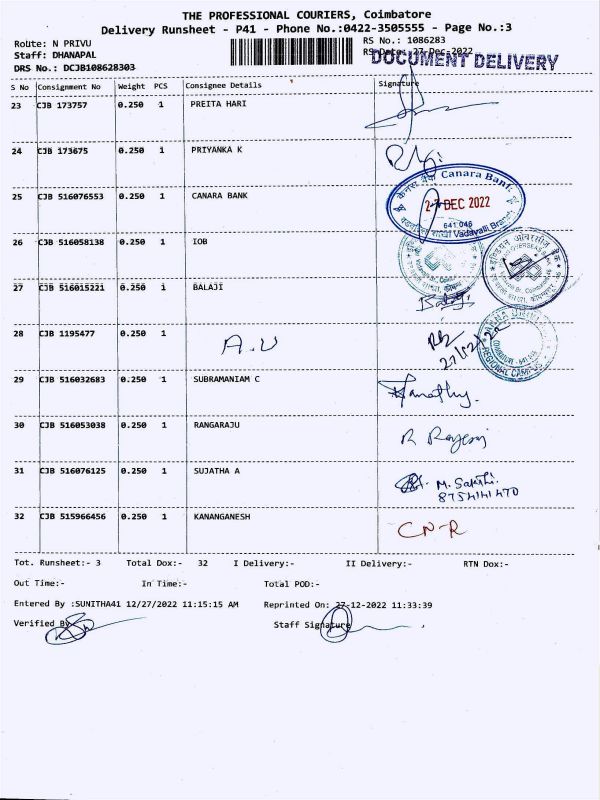 THE PROFESSIONAL COURIERS, Coimbatore
Delivery Runsheet - P41 - Phone No.:0422-3505555 - Page No.:3
Route: N PRIVU RS No.: 1086283
Staff: DHANAPAL RS Date: 27-Dec-2022
DOCUMENT DELIVERY
DRS No.: DCJB108628303
S No Consignment No Weight PCS Consignee Details Signature
23 CJB 173757 0.250 1 PREITA HARI
24 CJB 173675 0.250 1 PRIYANKA K
25 CJB 516076553 0.250 1 CANARA BANK
केनरा बैंक Canara Bank
27 DEC 2022
641 046
Vadavalli Branch
26 CJB 516058138 0.250 1 IOB
27 CJB 516015221 0.250 1 BALAJI
Balaji
28 CJB 1195477 0.250 1 A.U
27/12/22
REGIONAL CAMPUS
29 CJB 516032683 0.250 1 SUBRAMANIAM C
30 CJB 516053038 0.250 1 RANGARAJU
31 CJB 516076125 0.250 1 SUJATHA A
M. Sakthi.
8754141470
32 CJB 515966456 0.250 1 KANANGANESH
CN-R
Tot. Runsheet:- 3 Total Dox:- 32 I Delivery:- II Delivery:- RTN Dox:-
Out Time:- In Time:- Total POD:-
Entered By :SUNITHA41 12/27/2022 11:15:15 AM Reprinted On: 27-12-2022 11:33:39
Verified By Staff Signature